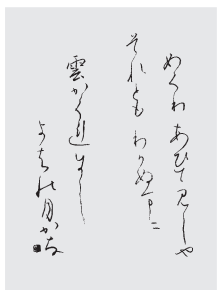 めくりあひて見しや
それともわかぬ間に
雲かくれにし
よはの月かな